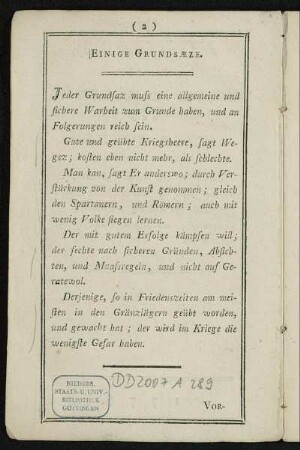 ( 2 )
EINIGE GRUNDSÆZE.
Jeder Grundſaz muſs eine allgemeine und
ſichere Warheit zum Grunde haben, und an
Folgerungen reich ſein.
Gute und geübte Kriegsheere, ſagt We-
gez; koſten eben nicht mehr, als ſchlechte.
Man kan, ſagt Er anderswo; durch Ver-
ſtärkung von der Kunſt genommen; gleich
den Spartanern, und Römern; auch mit
wenig Volke ſiegen lernen.
Der mit guten Erfolge kämpfen will;
der fechte nach ſicheren Gründen, Abſich-
ten, und Maaſsregeln, und nicht auf Ge-
ratewol.
Derjenige, ſo in Friedenszeiten am mei-
ſten in den Gränzlägern geübt worden,
und gewacht hat; der wird im Kriege die
wenigſte Gefar haben.
NIEDERS.
STAATS- U. UNIV.-
BIBLIOTHEK
GÖTTINGEN
DD2007 A 289
VOR-